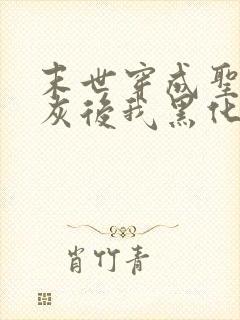 末世穿成聖
灰後我黑化
肖竹青